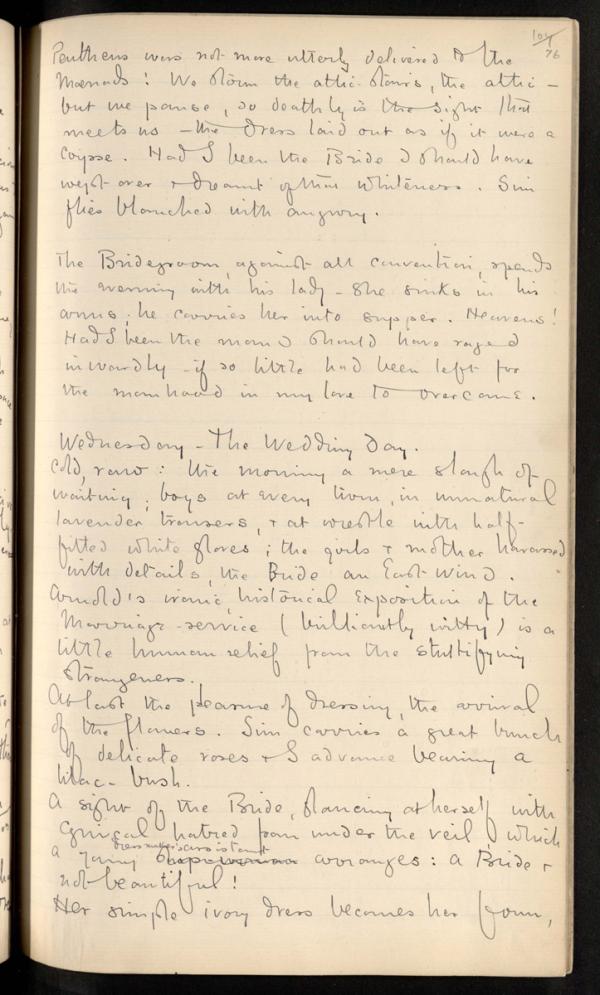 104
76
Pentheus was not more utterly delivered to the
Maenads! We storm the attic-stairs, the attic –
but we pause, so deathly is the sight that
meets us – the dress laid out as if it were a
corpse. Had I been the Bride I should have
wept over & dreamt of that whiteness. Sim
flies blanched with angry.
The Bridegroom, against all convention, spends
the evening with his lady – she sinks in his
arms; he carries her into supper. Heavens!
Had I been the man I should have raged
inwardly – if so little had been left for
the manhood in my love to overcome.
Wednesday – The Wedding Day.
Cold, raw: the morning a mere slough of
waiting; boys at every turn, in unnatural
lavender trousers, & at wrestle with half-
fitted white gloves; the girls & mother harassed
with details, the Bride an East-Wind.
Arnold's ironic, historical Exposition of the
Marriage-service (brilliantly witty) is a
little human relief from the stultifying
strangeness.
At last the pleasure of dressing, the arrival
of the flowers. Sim carries a great bunch
of delicate roses & I advance bearing a
lilac-bush.
A sight of the Bride, glancing at herself with
cynical hatred from under the veil which
dressmaker's assistant
a young shopwoman arranges: a Bride &
not beautiful!
Her simple ivory dress becomes her form,